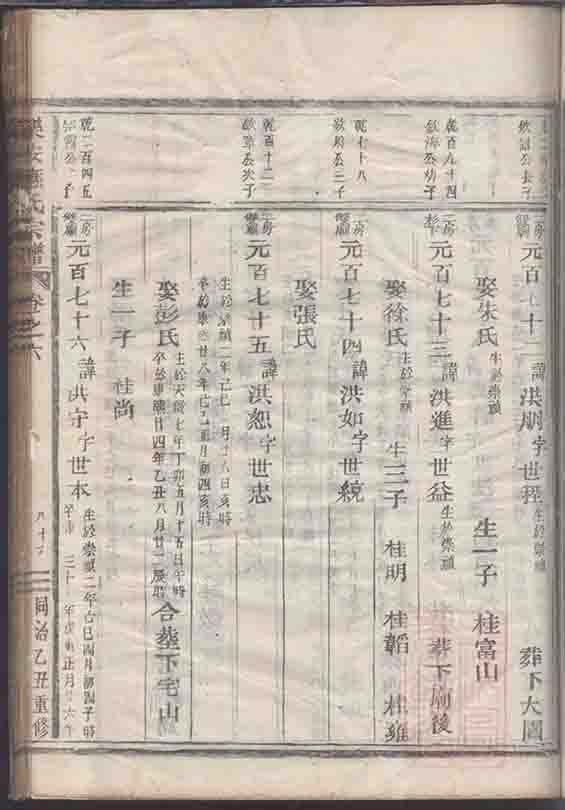 欽海公幼子
乾百九十四
欽順公三千
乾七十八
欽公次子
乾百十二
公子
乾二百四五
元百七十二 諱洪朋字世程 生於崇禎 葬下大園
娶朱氏 生於崇禎 生一子 桂富山
二房
元百七十三 諱洪進字世益 生於崇禎 葬下廟後
娶徐氏 生於崇禎 生三子 桂明 桂韜 桂雍
二房
元百七十四 諱洪如字世統
娶張氏
二房
元百七十五 諱洪恕字世忠
生於崇禎二年己巳 月十八日亥時
卒於康熙廿八年己巳正月初四亥時
娶彭氏 生於天啟七年丁卯五月十五日午時
卒於康熙廿四年乙丑八月廿二辰時 合葬下宅山
生一子 桂尚
二房
元百七十六 諱洪守字世本 生於崇禎二年己巳四月初四子時
年庚 正月 六年
氏宗譜 卷之六 八十六 同治乙丑重修